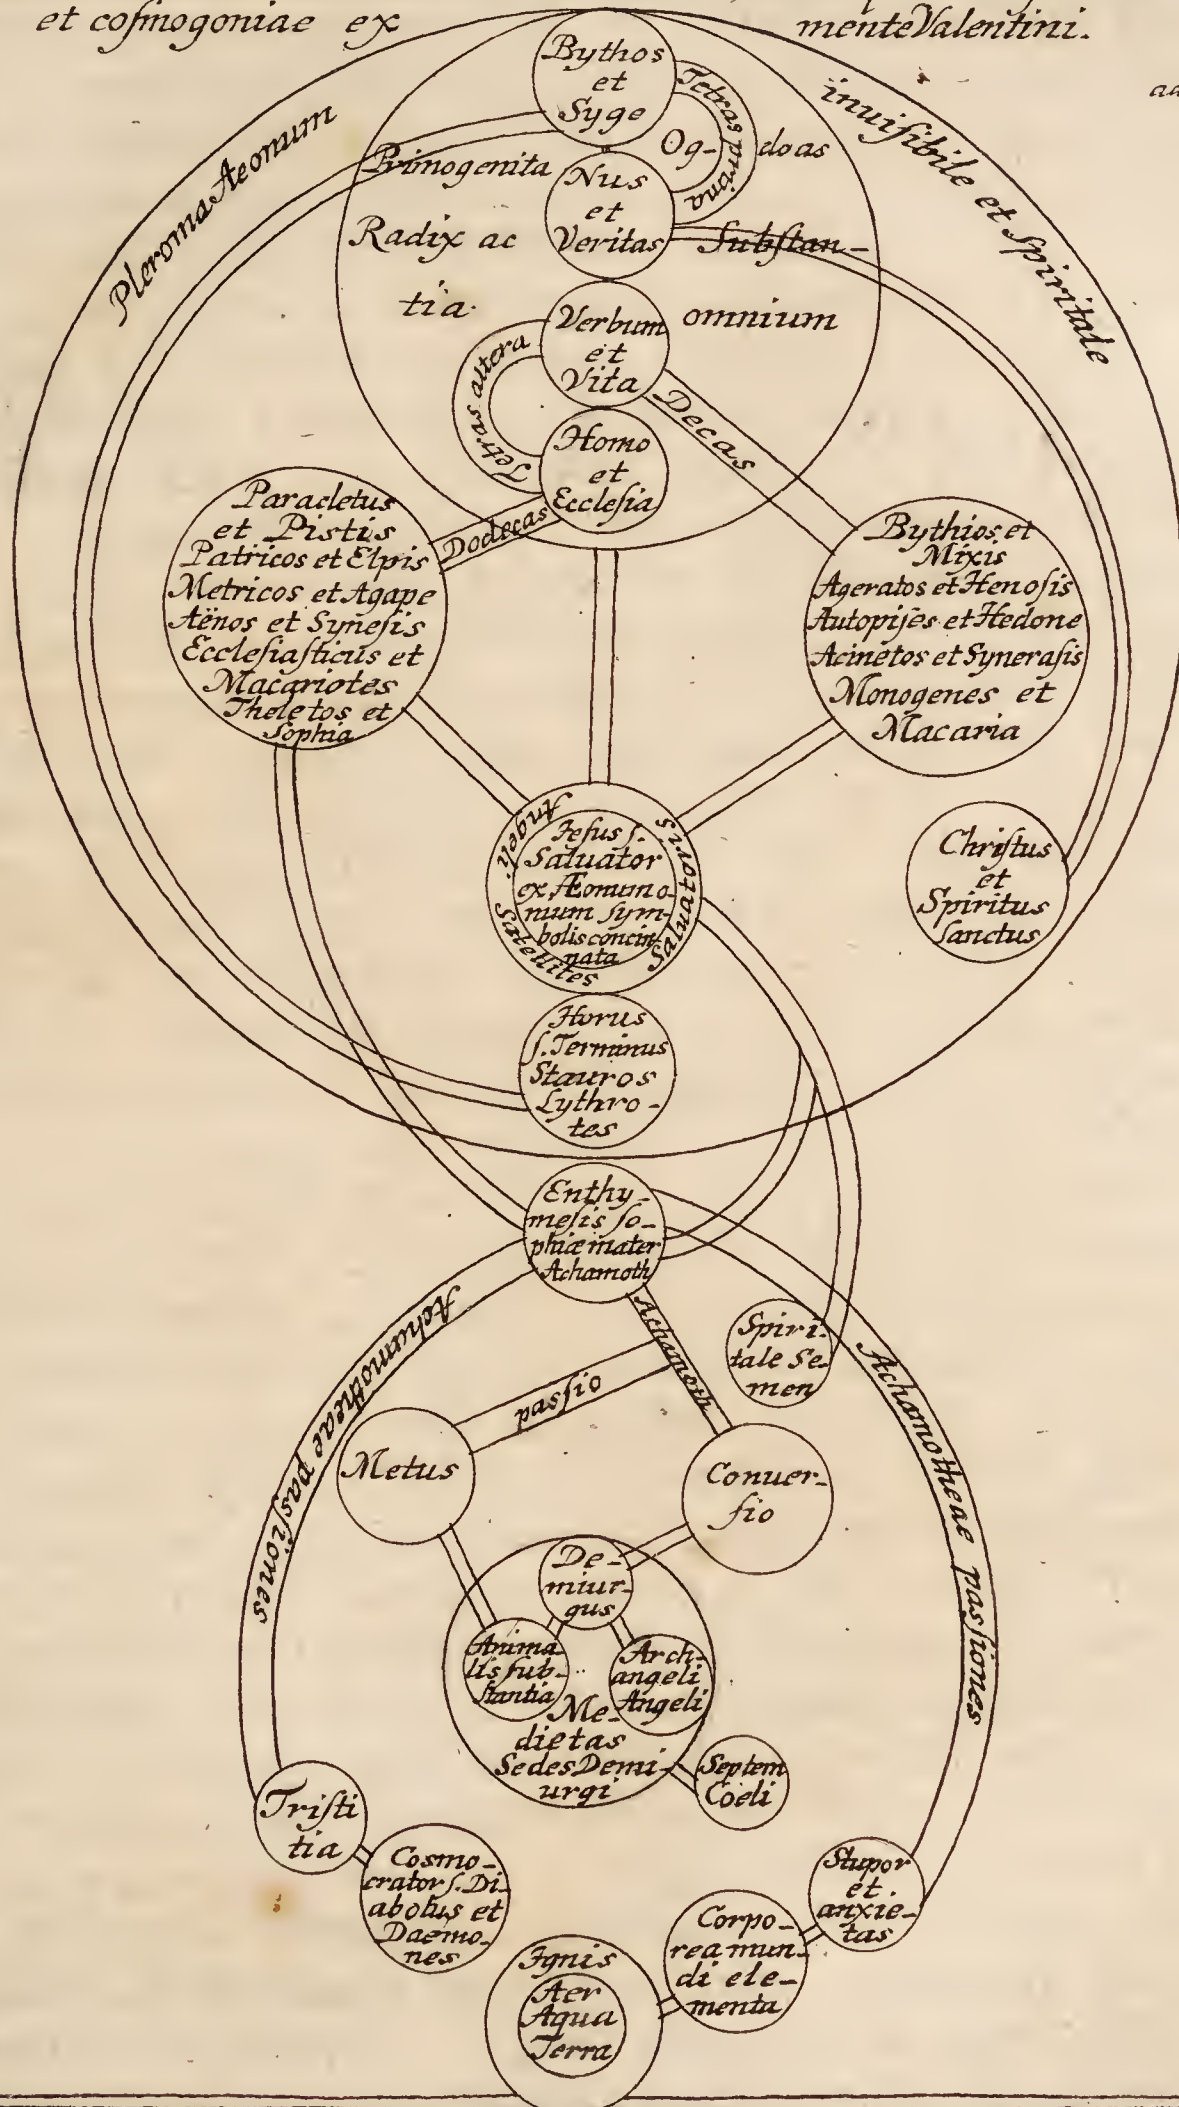 et cosmogoniae ex
mente Valentini.
Pleroma Aeonum
invisibile et Spiritale
Bythos
et
Syge
Tetras prima
Og-
doas
Primogenita
Nus
et
Veritas
Radix ac
Substan-
tia
omnium
Verbum
et
Vita
Tetras altera
Decas
Homo
et
Ecclesia
Dodecas
Paracletus
et Pistis
Patricos et Elpis
Metricos et Agape
Aënos et Synesis
Ecclesiasticus et
Macariotes
Theletos et
Sophia
Bythios et
Mixis
Ageratos et Henosis
Autopijes et Hedone
Acinetos et Synerasis
Monogenes et
Macaria
Angeli
Satellites
Saluatoris
Jesus s.
Saluator
ex Æonum o-
nium sym-
bolis concin-
nata
Christus
et
Spiritus
sanctus
Horus
s. Terminus
Stauros
Lythro-
tes
Enthy-
mesis so-
phiæ mater
Achamoth
Achamotheae passiones
Achamoth
passio
Spiri-
tale Se-
men
Achamotheae passiones
Metus
Conuer-
sio
De-
miur-
gus
Anima
lis sub-
stantia
Arch-
angeli
Angeli
Me-
dietas
Sedes Demi-
urgi
Septem
Coeli
Tristi
tia
Cosmo-
crator s. Di-
abolus et
Daemo-
nes
Stupor
et
anxie-
tas
Corpo-
rea mun-
di ele-
menta
Ignis
Aer
Aqua
Terra